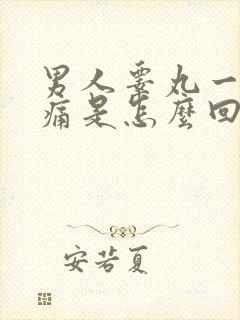 男人睾丸一
痛是怎麼回
安若夏